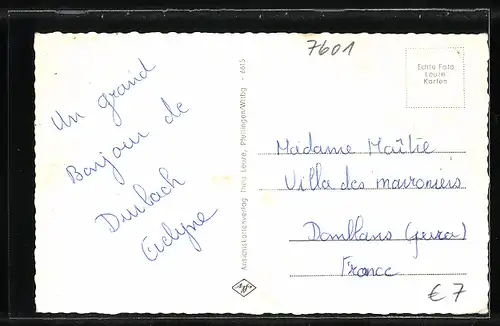 7601
Echte Foto
Leuze
Karten
Un grand
Bonjour de
Durbach
Evelyne
Ansichtskartenverlag Thig Leuze, Pfullingen/Wttbg. - 6615
Madame Maîtie
Villa des maroniers
Domblans (jura)
France
Agfa
€ 7